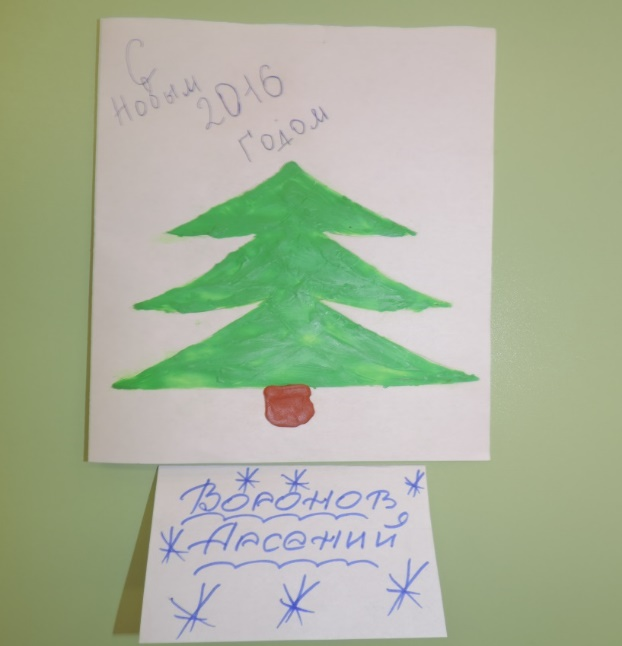 С
Новым 2016
Годом
Воронов
Арсений